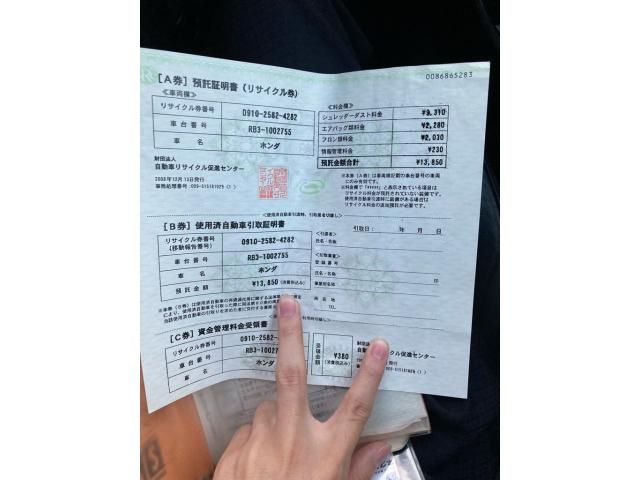 0086865283
[A券] 預託証明書 (リサイクル券)
≪車両欄≫
リサイクル券番号 0910-2582-4282
車台番号 RB3-1002755
車名 ホンダ
≪料金欄≫
シュレッダーダスト料金 ¥9,310
エアバッグ類料金 ¥2,280
フロン類料金 ¥2,030
情報管理料金 ¥230
預託金額合計 ¥13,850
財団法人
自動車リサイクル促進センター
2008年12月13日発行
[B券] 使用済自動車引取証明書
引取日: 年 月 日
リサイクル券番号
(移動報告番号) 0910-2582-4282
車台番号 RB3-1002755
車名 ホンダ
預託金額 ¥13,850 (消費税込み)
≪引渡者≫
氏名・名称
≪引取業者≫
登録番号
氏名・名称
事業所名
所在地
TEL.
[C券] 資金管理料金受領書
リサイクル券番号 0910-2582
車台番号 RB3-10027
車名 ホンダ
受領金額 ¥380
(消費税込み)
財団法
自動 リサイクル促進センター